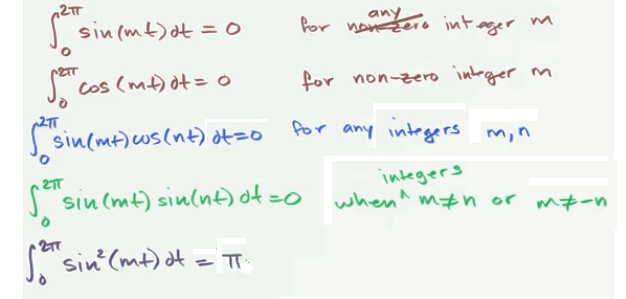 ∫₀^2π sin(mt)dt = 0 for any non-zero integer m
∫₀^2π cos(mt)dt = 0 for non-zero integer m
∫₀^2π sin(mt)cos(nt)dt=0 for any integers m,n
∫₀^2π sin(mt) sin(nt) dt=0 when integers m≠n or m≠-n
∫₀^2π sin²(mt)dt = π